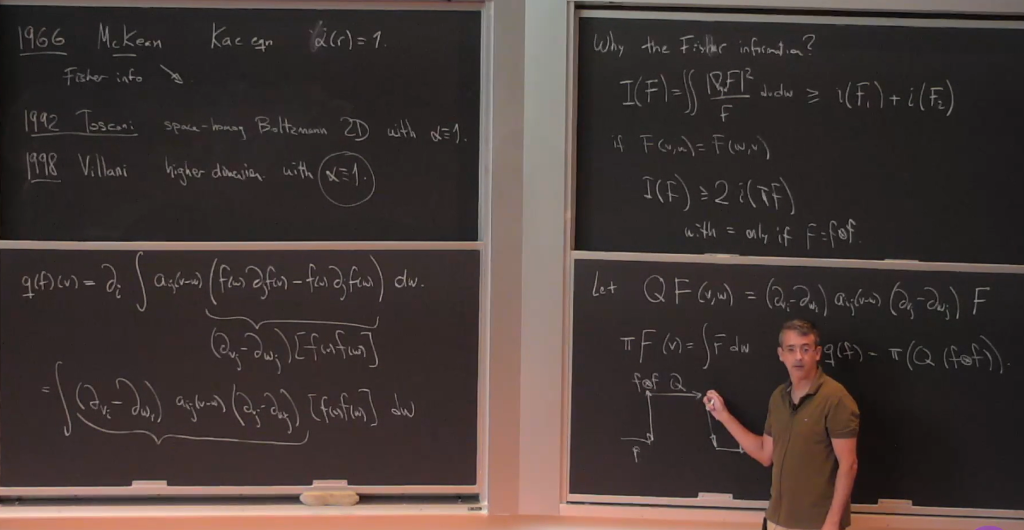 1966 McKean Kac eqn α(r)=1.
Fisher info ↘
1992 Toscani space-homog Boltzmann 2D with α≡1.
1998 Villani higher dimension with α≡1.
q(f)(v) = ∂ᵢ ∫ aᵢⱼ(v-w) (f(w) ∂ⱼf(v) - f(v) ∂ⱼf(w)) dw.
(∂vⱼ-∂wⱼ)[f(v)f(w)]
= ∫ (∂vᵢ-∂wᵢ) aᵢⱼ(v-w) (∂vⱼ-∂wⱼ) [f(v)f(w)] dw
Why the Fisher information?
I(F) = ∬ |∇F|²/F dvdw ≥ i(F₁) + i(F₂)
if F(v,w) = F(w,v)
I(F) ≥ 2 i(πF)
with = only if F = f⊗f.
Let QF(v,w) = (∂vᵢ-∂wᵢ) aᵢⱼ(v-w) (∂vⱼ-∂wⱼ) F
πF(v) = ∫ F dw q(f) = π(Q(f⊗f)).
f⊗f Q
f